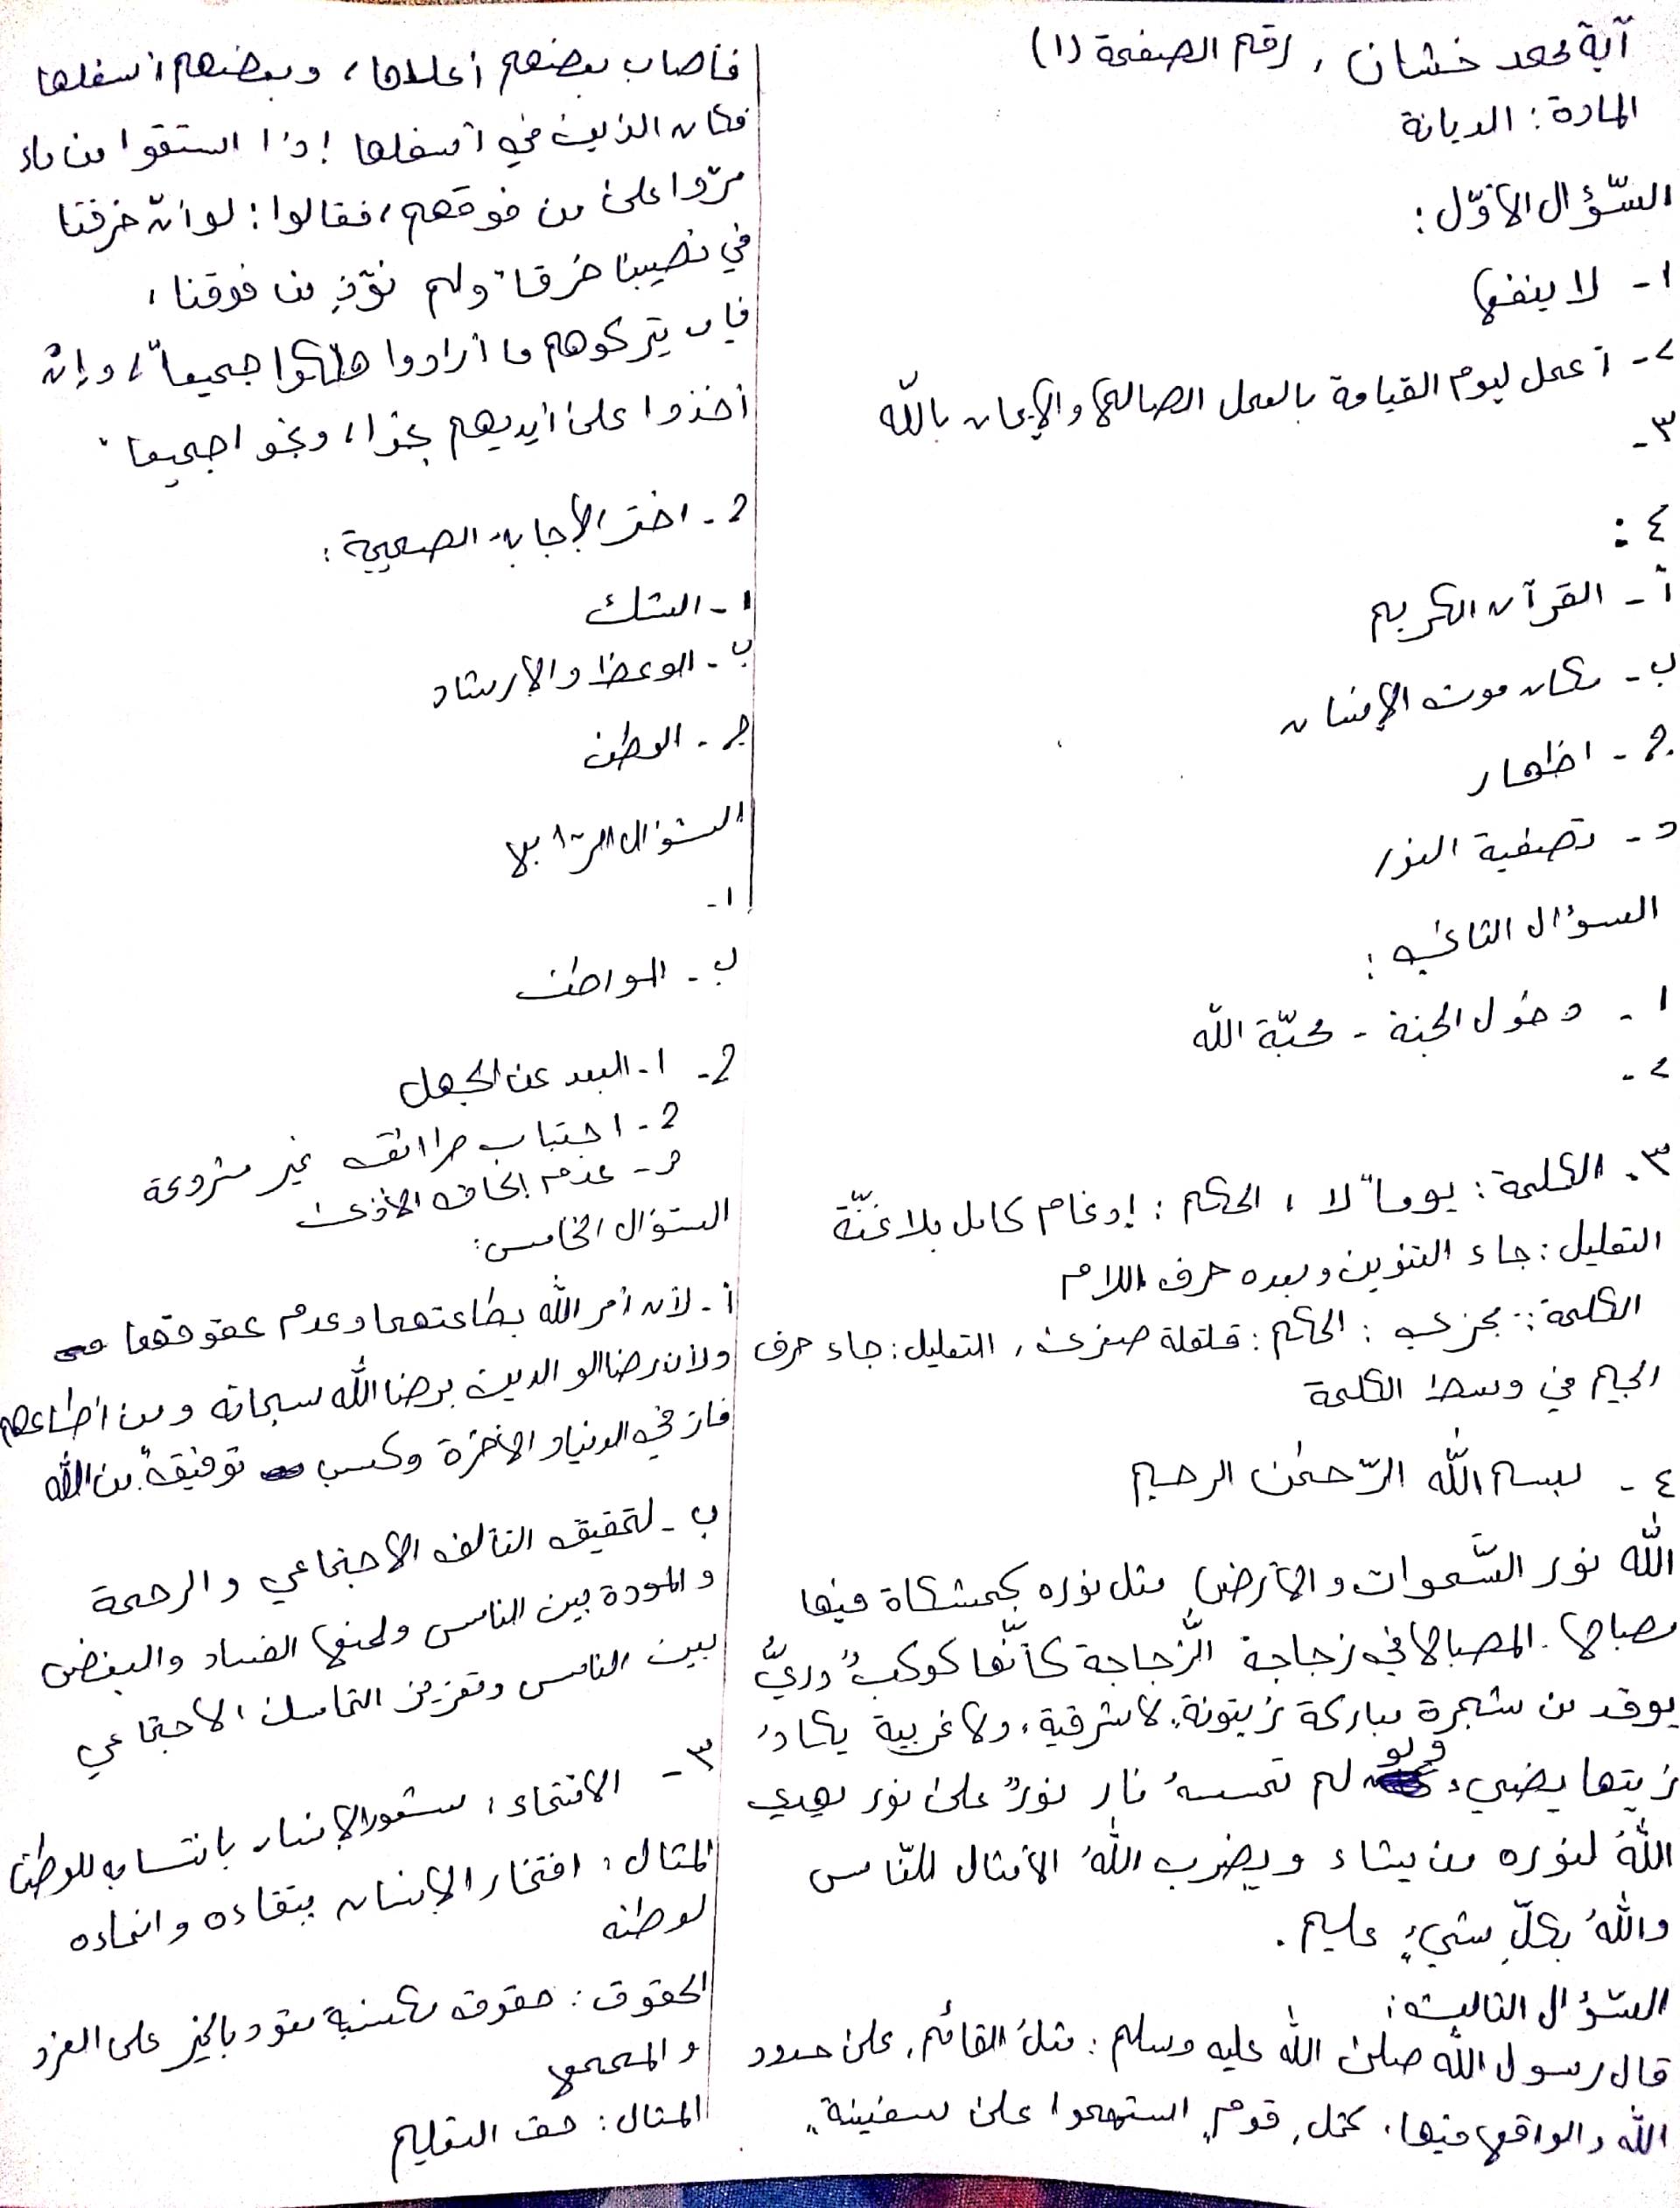 آية محمد خشان ، رقم الصفحة (١)
المادة : الديانة
السّؤال الأوّل :
١ - لا ينفع
٢ - أعمل ليوم القيامة بالعمل الصالح والإيمان بالله
٣ -
٤ :
أ - القرآن الكريم
ب - مكان موت الإنسان
ج - اظهار
د - تصفية النور
السؤال الثاني :
١ - دخول الجنة - محبّة الله
٢ -
٣ - الكلمة : يوماً لا ، الحكم : إدغام كامل بلا غنّة
التعليل : جاء التنوين وبعده حرف اللام
الكلمة : يجزي : الحكم : قلقلة صغرى ، التعليل : جاء حرف
الجيم في وسط الكلمة
٤ - بسم الله الرّحمن الرحيم
الله نور السّموات والأرض مثل نوره كمشكاة فيها
مصباح . المصباح في زجاجة الزّجاجة كأنّها كوكبٌ دريٌّ
يوقد من شجرة مباركة زيتونةٍ لا شرقية ، ولا غربية يكادُ
زيتها يضيء ولو لم تمسسهُ نار نورٌ على نور يهدي
اللهُ لنوره من يشاء ويضرب اللهُ الأمثال للنّاس
واللهُ بكلّ شيءٍ عليم .
السّؤال الثالث :
قال رسول الله صلى الله عليه وسلم : مثلُ القائم على حدود
الله والواقع فيها ، كمثل قومٍ استهموا على سفينةٍ
فأصاب بعضهم أعلاها ، وبعضهم أسفلها
فكان الذين في أسفلها إذا استقوا من ماء
مرّوا على من فوقهم ، فقالوا : لو أنّ خرقنا
في نصيبنا خرقاً ولم نؤذِ من فوقنا ،
فإن يتركوهم ما أرادوا هلكوا جميعاً ، وإن
أخذوا على أيديهم نجوا ، ونجوا جميعاً .
2 - اختر الإجابة الصحيحة :
١ - الشك
ب - الوعظ والإرشاد
ج - الوطن
السّؤال الرّابع
١ -
ب - المواطن
2 - ١ - البعد عن الجهل
2 - اجتناب طرائق غير مشروعة
٣ - عدم إلحاق الأذى
السّؤال الخامس :
أ - لأن أمر الله بطاعتهما وعدم عقوقهما
ولأن رضا الوالدين برضا الله سبحانه ومن أطاعهم
فاز في الدنيا والآخرة وكسب توفيقهً من الله
ب - لتحقيق التآلف الاجتماعي والرحمة
والمودة بين الناس ولمنع الفساد والبغض
بين الناس وتعزيز التماسك الاجتماعي
٣ - الانتماء : شعور الإنسان بانتسابه للوطن
المثال : افتخار الإنسان ببقاءه وانماءه
لوطنه
الحقوق : حقوق مكتسبة تعود بالخير على الفرد
والمجتمع
المثال : حق التعليم